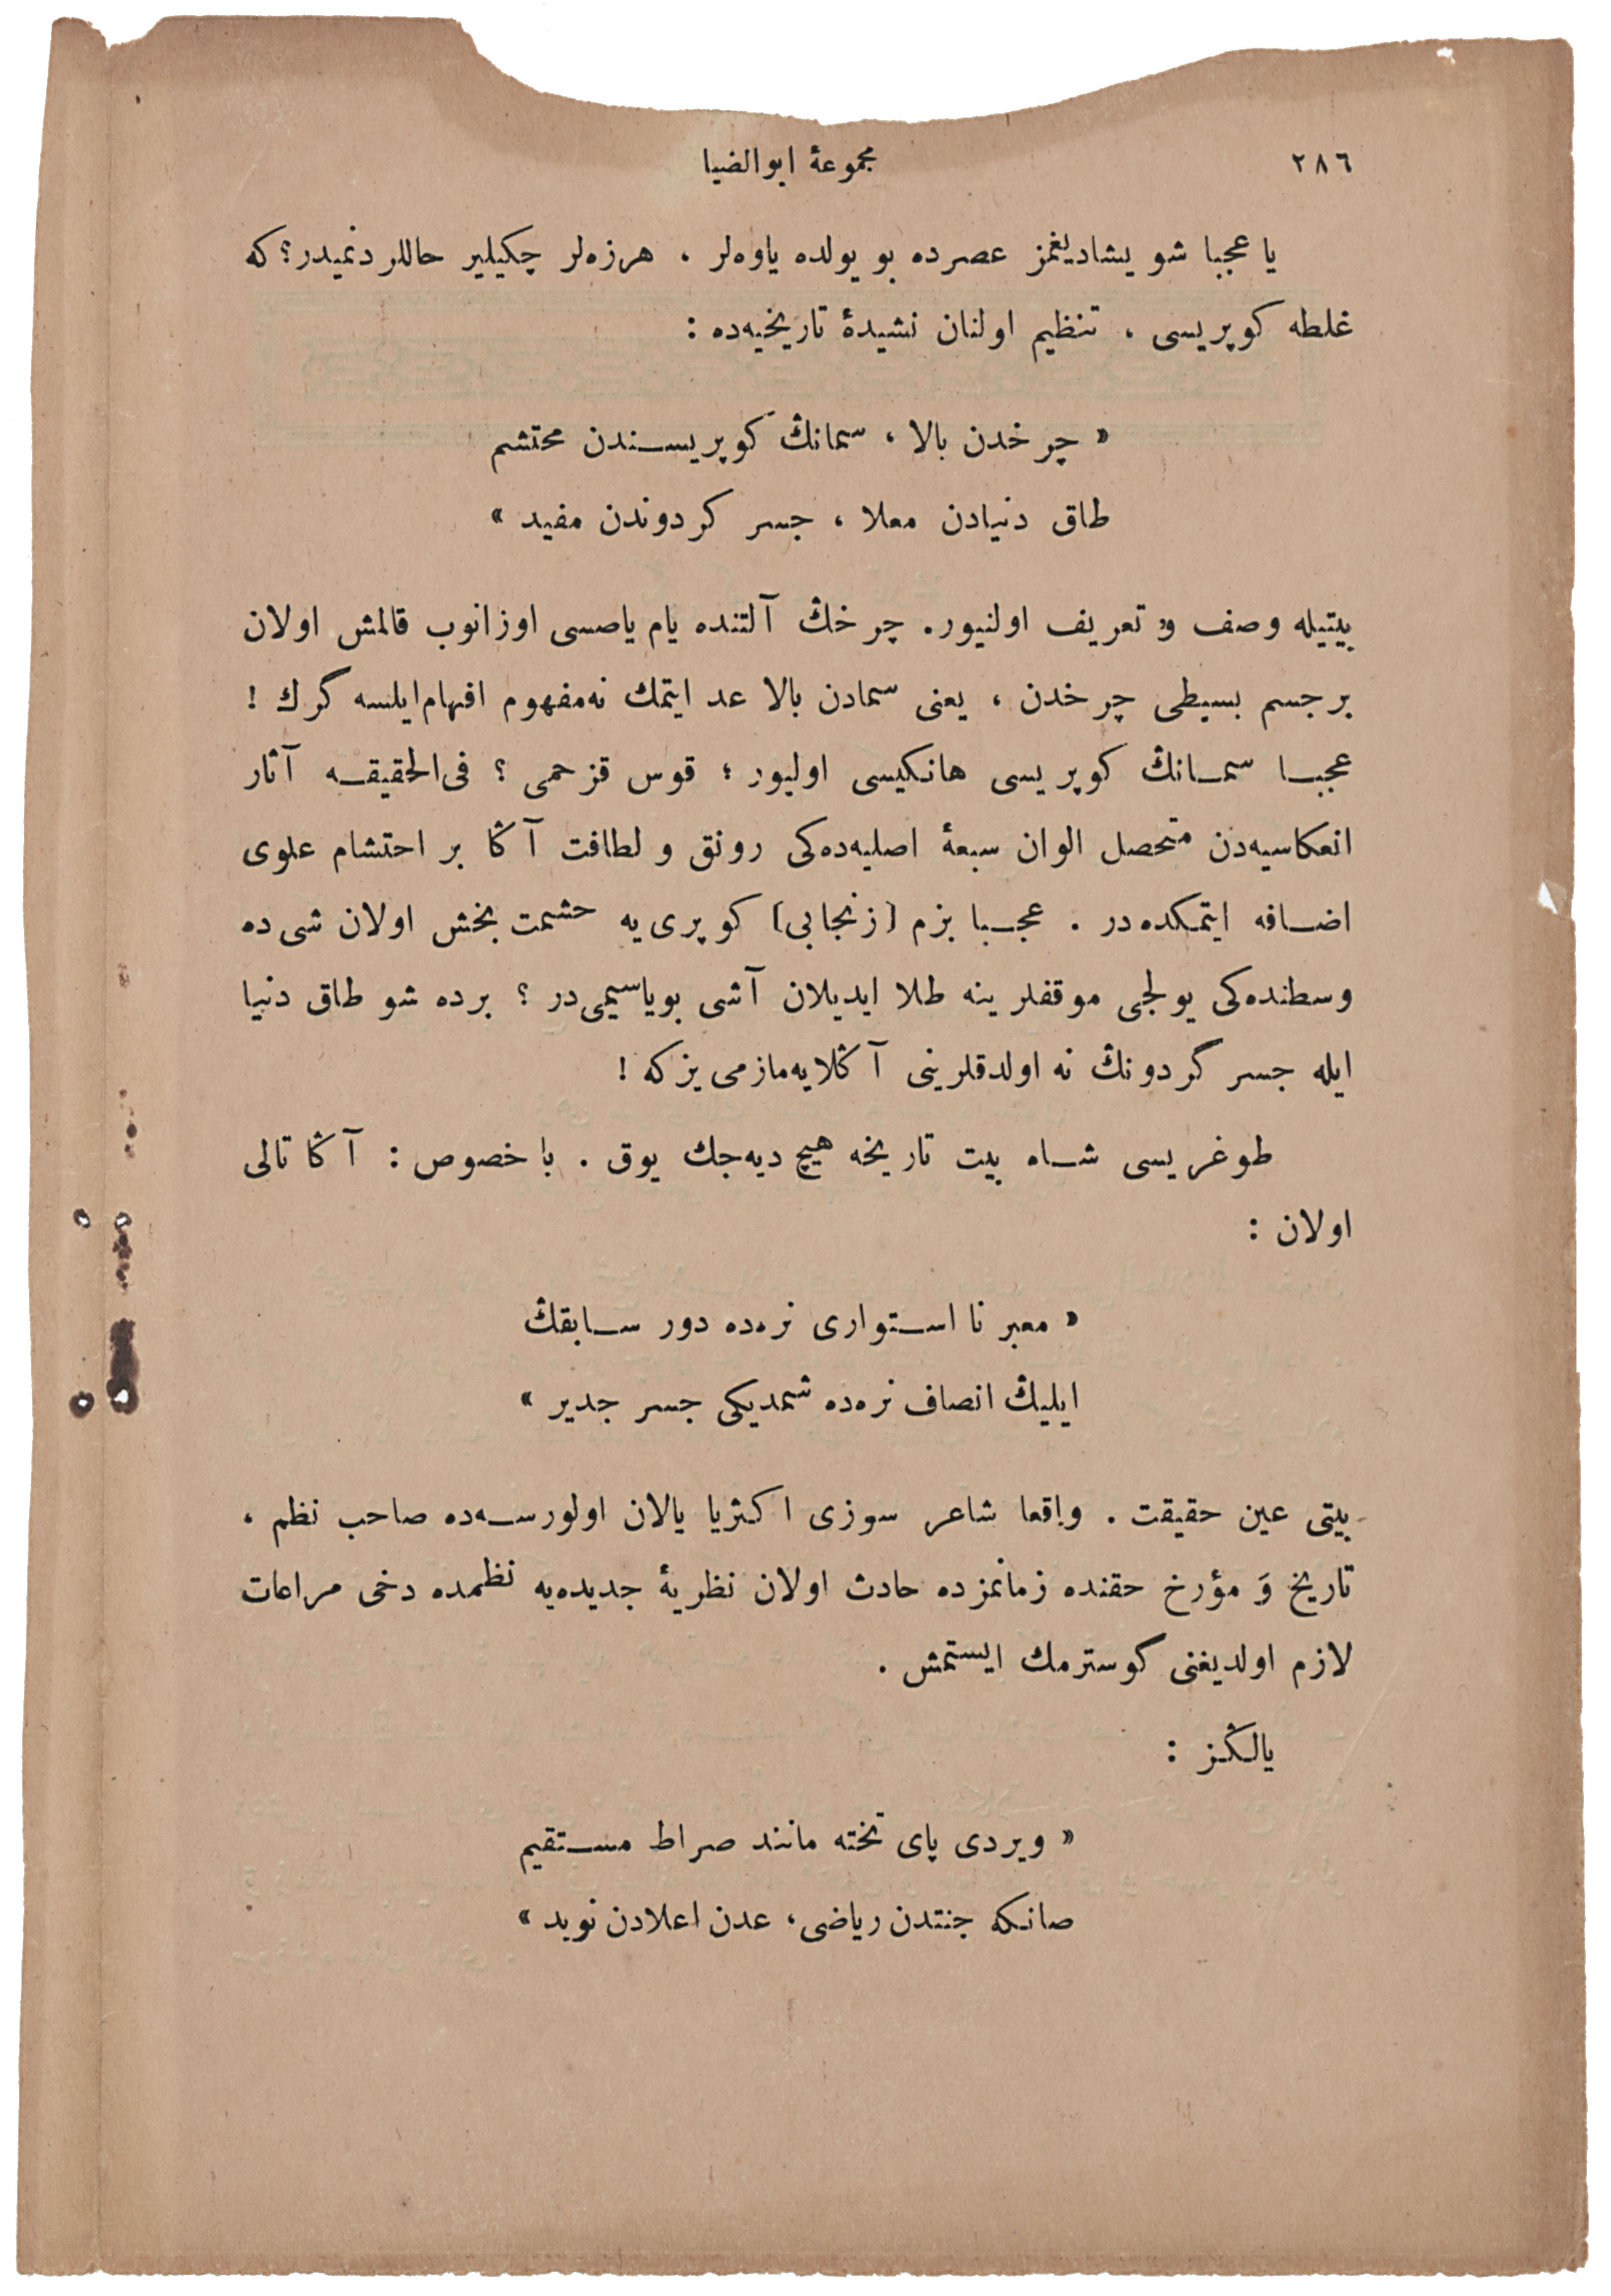 ٢٨٦
مجموعهٔ ابوالضیا
یا عجبا شو یشادیغمز عصرده بو یولده یاوه‌لر ، هرزه‌لر چکیلیر حاللردنمیدر؟ که
غلطه کوپریسی ، تنظیم اولنان نشیدهٔ تاریخیه‌ده :
« چرخدن بالا ، سمانڭ کوپریسندن محتشم
طاق دنیادن معلا ، جسر کردوندن مفید »
بیتیله وصف و تعریف اولنیور. چرخڭ آلتنده یام یاصسی اوزانوب قالمش اولان
برجسم بسیطی چرخدن ، یعنی سمادن بالا عد ایتمك نه‌مفهوم افهام‌ایلسه گرك !
عجبا سمانڭ کوپریسی هانکیسی اولیور ؛ قوس قزحمی ؟ فی‌الحقیقه آثار
انعکاسیه‌دن متحصل الوان سبعهٔ اصلیه‌ده‌کی رونق و لطافت آڭا بر احتشام علوی
اضافه ایتمکده‌در . عجبا بزم (زنجابی) کوپری‌یه حشمت بخش اولان شی‌ده
وسطنده‌کی یولجی موقفلرینه طلا ایدیلان آشی بویاسیمی‌در ؟ برده شو طاق دنیا
ایله جسر گردونڭ نه اولدقلرینی آڭلایه‌مازمی‌یزکه !
طوغریسی شاه بیت تاریخه هیچ دیه‌جك یوق . باخصوص : آڭا تالی
اولان :
« معبر نا استواری نره‌ده دور سابقڭ
ایلیڭ انصاف نره‌ده شمدیکی جسر جدیر »
بیتی عین حقیقت . واقعا شاعر سوزی اکثریا یالان اولورسه‌ده صاحب نظم ،
تاریخ وَ مؤرخ حقنده زمانمزده حادث اولان نظریهٔ جدیده‌یه نظمده دخی مراعات
لازم اولدیغنی کوسترمك ایستمش .
یالڭز :
« ویردی پای تخته مانند صراط مستقیم
صانکه جنتدن ریاضی، عدن اعلادن نوید »